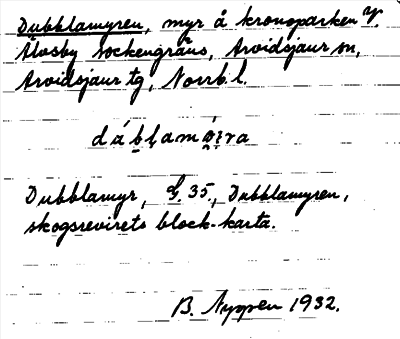 Dubblamyren, myr å kronoparken V.
Älvsby sockengräns, Arvidsjaur sn,
Arvidsjaur tg, Norrb.l.
dúb̥l̥am
Dubblamyr, G. 35., Dubblamyren,
skogsrevirets block-karta.
B. Nyppen 1932.